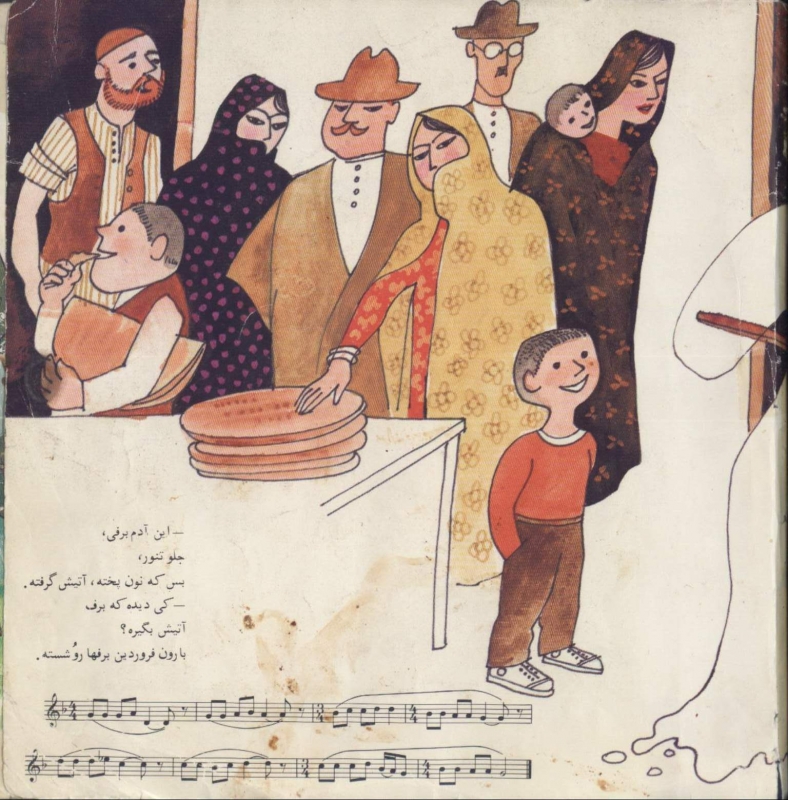 —این آدم برفی،
جلو تنور،
بس که نون پخته، آتیش گرفته.
—کی دیده که برف،
آتیش بگیره؟
بارون فروردین برفها رُو شسته.